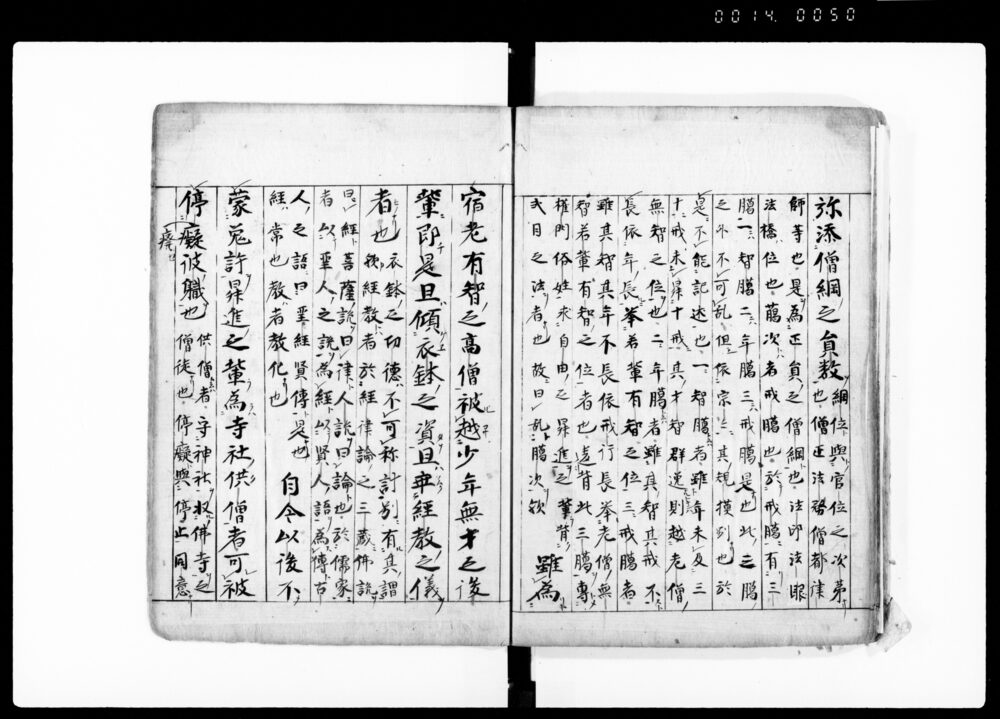 0014. 0050
弥添僧綱之員数 綱位与官位之次第
也僧正法務僧都律
師等也是為正員之僧綱也法印法眼
法橋位也﨟次者戒﨟也於戒﨟有三
﨟一智﨟二年﨟三戒﨟是也此三﨟
之外不可乱但依宗其規摸別也於
是不能記述也一智﨟者雖年未及三
十戒未昇十戒其才智群逸則越老僧
無智之位也二年﨟者雖其智其戒不
長依年長挙若輩有智之位三戒﨟者
雖其智其年不長依戒行長挙老僧無
智若輩有智之位者也違背此三﨟専
権門俗姓求自由之昇進之輩背
式目之法者也故曰乱﨟次欤 雖為
宿老有智之高僧被越少年無才之後
輩即是且傾衣鉢之資且乖経教之儀
者也 衣鉢之功徳不可称計別有其謂
経教者於経律論之三蔵仏説
曰経菩薩説曰律人説曰論也於儒家
者以聖人之説為経以賢人語為伝古
人之語曰聖経賢伝是也
経常也教者教化也 自今以後不
蒙免許昇進之輩為寺社供僧者可被
停癈彼職也 供僧者守神社扠仏寺之
僧徒也停癈与停止同意